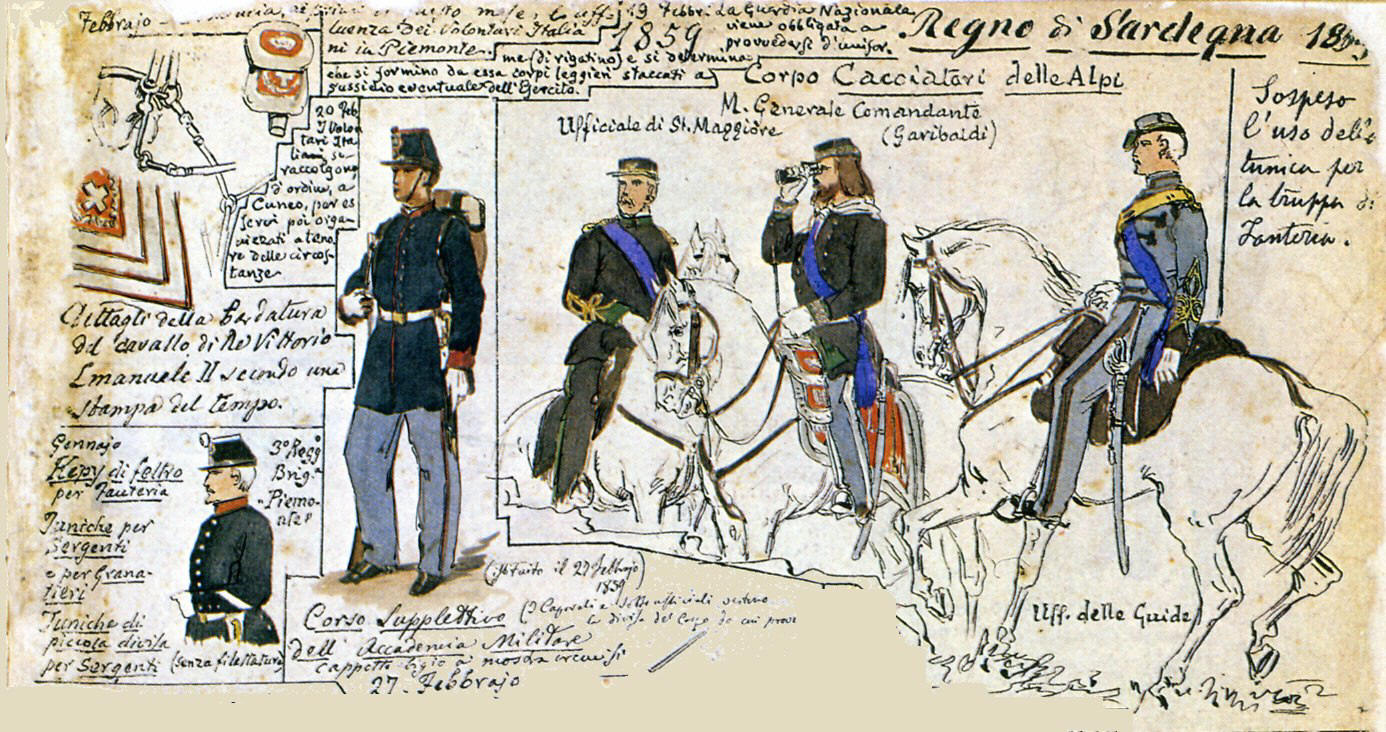 Febbrajo
luenza Dei Volontari Italia
ni in Piemonte.
1859
19 Febbr. La Guardia Nazionale
viene obbligata a
provvedersi d'unifor.
me (di rigatino) e si determina
che si formino da essa corpi leggieri staccati a
sussidio eventuale dell'Esercito.
Regno di Sardegna 1859
Corpo Cacciatori delle Alpi
M. Generale Comandante
(Garibaldi)
Ufficiale di St. Maggiore
Sospeso
l'uso della
tunica per
la truppa di
Fanteria.
20 Feb
I Volon
tari Ita
liani si
raccolgono
d'ordine, a
Cuneo, per es
servi poi orga
nizzati a teno
re delle circos
tanze
Dettagli della Bardatura
del cavallo di Re Vittorio
Emanuele II secondo una
stampa del tempo.
Gennajo
Kepy di feltro
per Fanteria
Tuniche per
Sergenti
e per Grana-
tieri
Tuniche di
piccola divisa
per Sergenti (senza filettature)
3º Regg
Brig.
"Piemo-
nte"
(istituito il 27 Febbrajo
1859)
Corso Supplettivo
dell' Accademia Militare
27 Febbrajo
(I Caporali e Sottoufficiali vestono
la divisa del Corpo
Cappotto bigio a mostra
Uff. delle Guide